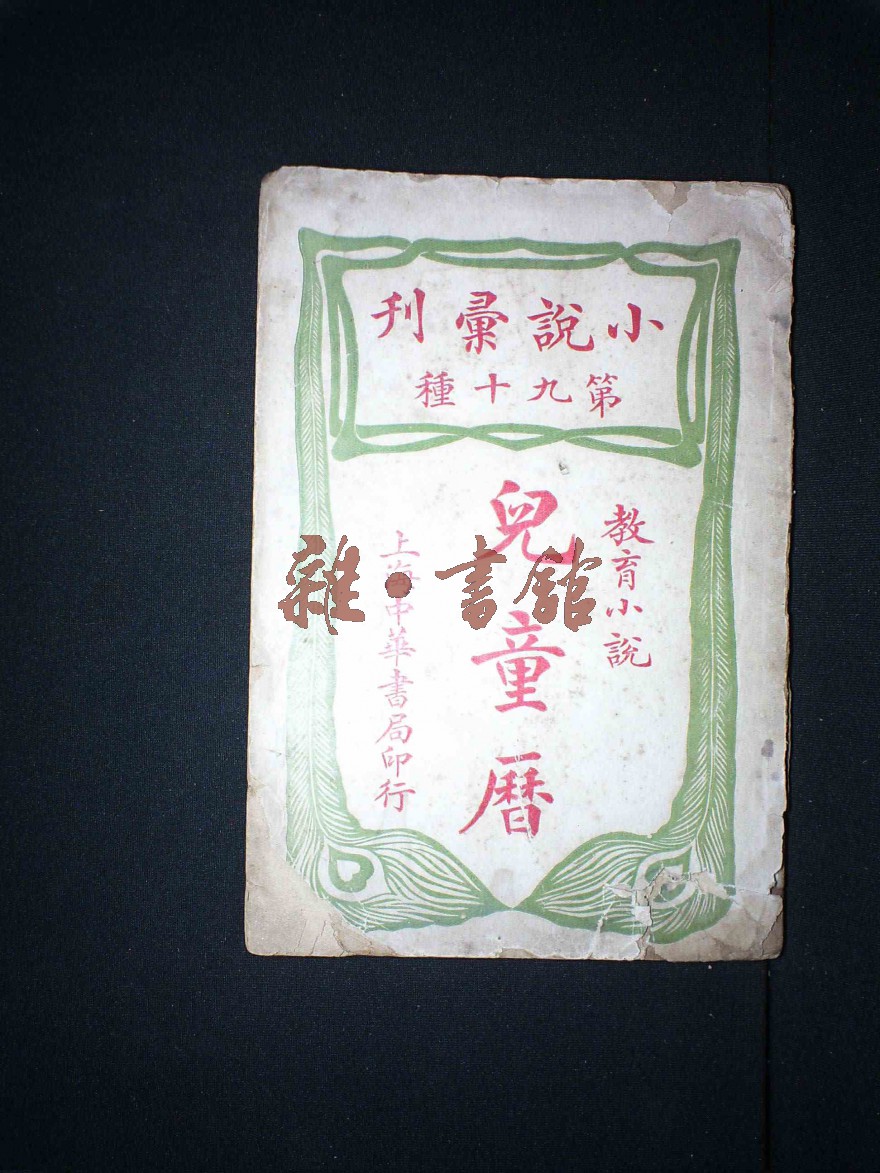 小說彙刊
第九十種
教育小說
兒童曆
上海中華書局印行
雜·書館